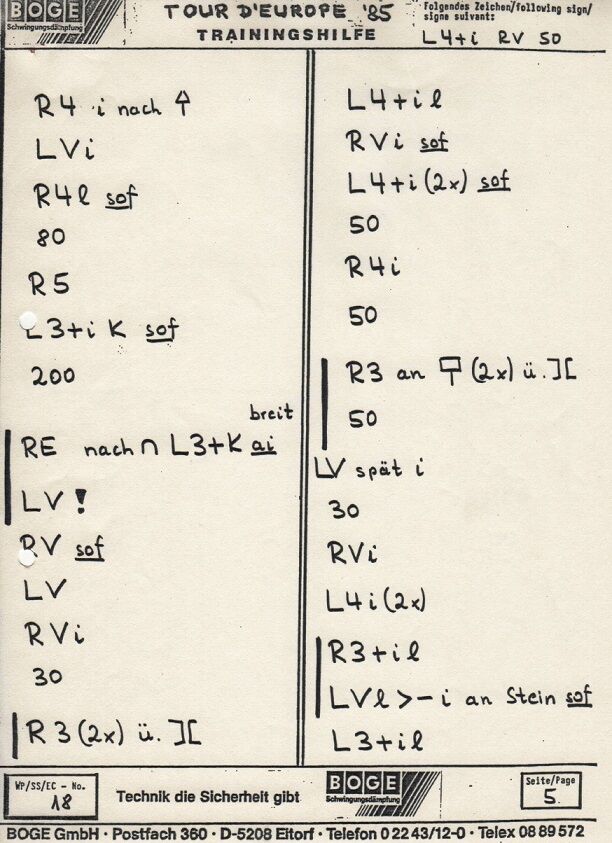 BOGE
Schwingungsdämpfung
TOUR D'EUROPE '85
TRAININGSHILFE
Folgendes Zeichen/following sign/
signe suivant:
L4+i RV 50
R4 i nach
LVi
R4l sof
80
R5
L3+i K sof
200
breit
RE nach ∩ L3+K ai
LV!
RV sof
LV
RVi
30
R3(2x) ü. ][
L4+il
RVi sof
L4+i(2x) sof
50
R4i
50
R3 an (2x) ü. ][
50
LV spät i
30
RVi
L4i(2x)
R3+il
LVl >- i an Stein sof
L3+il
WP/SS/EC - No.
18
Technik die Sicherheit gibt
BOGE
Schwingungsdämpfung
Seite/Page
5
BOGE GmbH · Postfach 360 · D-5208 Eitorf · Telefon 0 22 43/12-0 · Telex 08 89 572